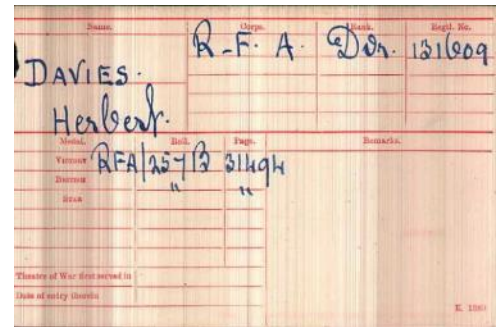 Name. Corps. Rank. Regtl. No.
R.F.A. Dvr. 131609
DAVIES.
Herbert.
Medal. Roll. Page. Remarks.
VICTORY RFA/257B 31494
BRITISH " "
STAR
Theatre of War first served in
Date of entry therein
K. 1380